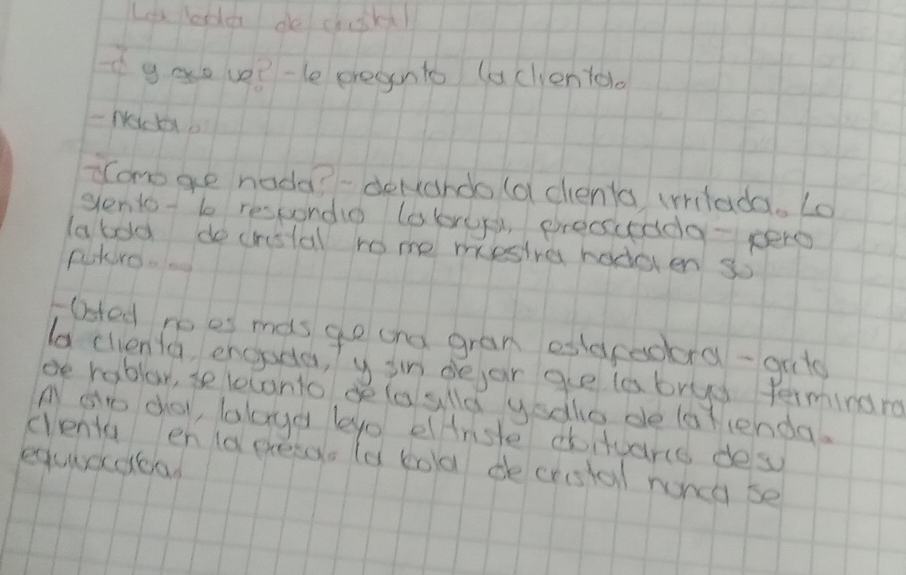 La bola de cristal
-¿ y que ve? -le pregunto la clienta.
- Nada.
-¿Como que nada? - demando la clienta, irritada. Lo
siento - le respondio la bruja, preocupada - pero
la bola de cristal no me muestra nada en su
futuro...
-Usted no es mas qe una gran estafadora - grito
la clienta, enojada, y sin dejar que la bruja terminara
de hablar, se levanto de la silla y salio de la tienda.
Al otro dia, la bruja leyo el triste obituario de su
clienta en la prensa. la bola de cristal nunca se
equivocaba.